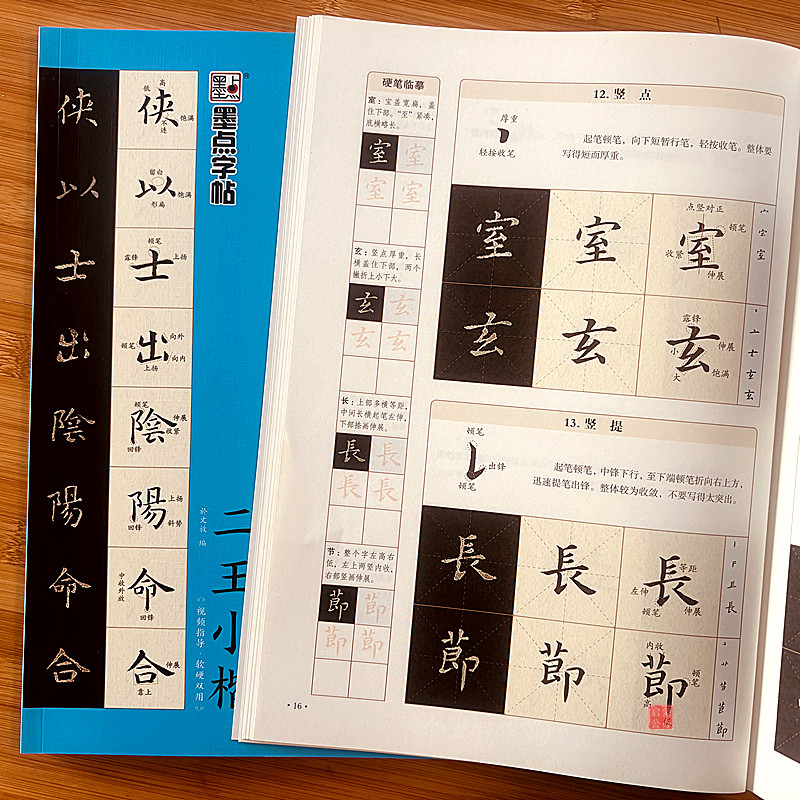 侠
以
士
出
陰
陽
命
合
高
低
侠
饱满
不连
留白
以
饱满
形扁
顿笔
露锋
士
上扬
顿笔
出
向外
向内
上扬
顿笔
陰
伸展
收紧
回锋
陽
上扬
斜势
回锋
中收外放
命
回锋
合
伸展
靠上
墨点
®
墨点字帖
二王小楷
於文效 编
视频指导·软硬双用
硬笔临摹
室：宝盖宽扁，盖
住下部。“至”紧凑，
底横略长。
室 室
室 室
玄：竖点厚重，长
横盖住下部，两个
撇折上小下大。
玄 玄
玄 玄
长：上部多横等距，
中间长横起笔左伸，
下部捺画伸展。
長 長
長 長
节：整个字左高右
低，左上两竖内收，
右部竖画伸展。
節 節
節 節
·16·
12. 竖 点
厚重
轻按收笔
起笔顿笔，向下短暂行笔，轻按收笔。整体要
写得短而厚重。
室 室 室
点竖对正
顿笔
收紧
伸展
宀 宊 室
玄 玄 玄
露锋
小
伸展
大
饱满
丶 亠 玄 玄
13. 竖 提
顿笔
出锋
顿笔
起笔顿笔，中锋下行，至下端顿笔折向右上方，
迅速提笔出锋。整体较为收敛，不要写得太突出。
長 長 長
等距
左伸
顿笔
伸展
長
節 節 節
内收
顿笔
高
節